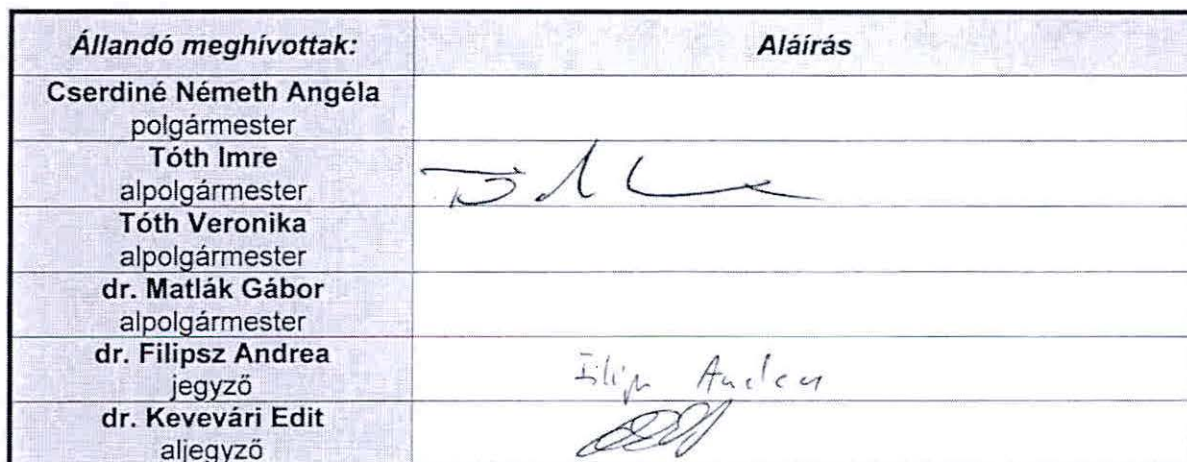 Állandó meghívottak: Aláírás
Cserdiné Németh Angéla
polgármester
Tóth Imre
alpolgármester
Tóth Veronika
alpolgármester
dr. Matlák Gábor
alpolgármester
dr. Filipsz Andrea
jegyző
dr. Kevevári Edit
aljegyző